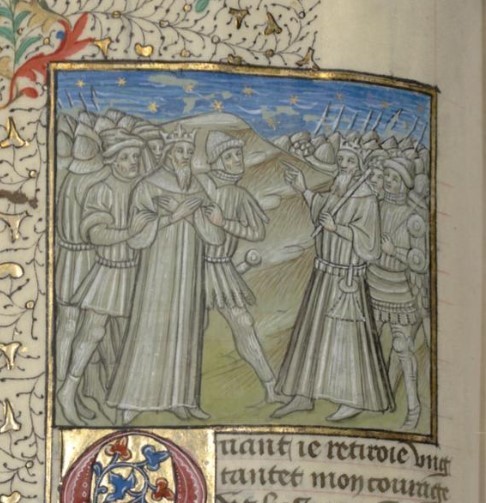 Quant ie retiroie vng
tantet mon courage